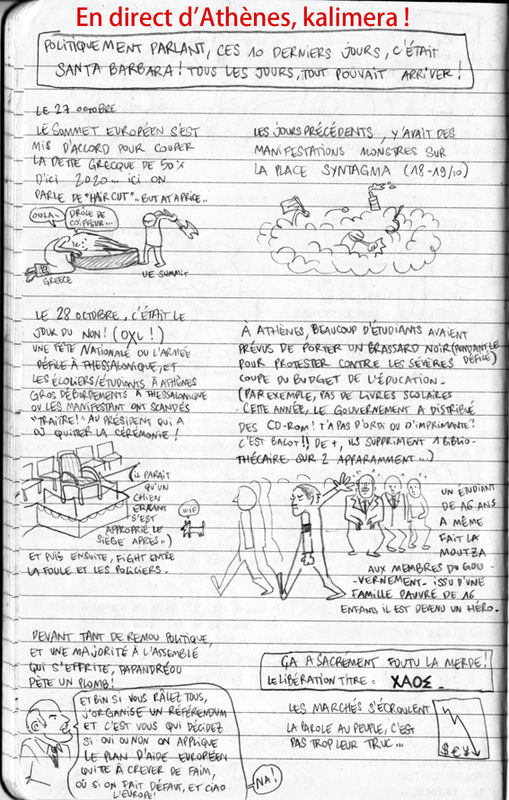 En direct d'Athènes, kalimera !
POLITIQUEMENT PARLANT, CES 10 DERNIERS JOURS, C'ÉTAIT
SANTA BARBARA! TOUS LES JOURS, TOUT POUVAIT ARRIVER!
LE 27 OCTOBRE
LE SOMMET EUROPÉEN S'EST
MIS D'ACCORD POUR COUPER
LA DETTE GRECQUE DE 50%
D'ICI 2020... ICI ON
PARLE DE "HAIRCUT".. BUT AT A PRICE..
OULA~
DRÔLE DE
COIFFEUR...
GREECE
UE SUMMIT
LES JOURS PRÉCÉDENTS, Y'AVAIT DES
MANIFESTATIONS MONSTRES SUR
LA PLACE SYNTAGMA (18-19/10)
LE 28 OCTOBRE, C'ÉTAIT LE
JOUR DU NON! (OXI!)
UNE FÊTE NATIONALE OU L'ARMÉE
DÉFILE À THESSALONIQUE, ET
LES ÉCOLIERS/ÉTUDIANTS À ATHÈNES
GROS DÉBORDEMENTS À THESSALONIQUE
OU LES MANIFESTANT ONT SCANDÉS
"TRAÎTRE!" AU PRÉSIDENT QUI A
DÛ QUITTER LA CÉRÉMONIE!
(IL PARAÎT
QU'UN
CHIEN
ERRANT
S'EST
APPROPRIÉ LE
SIÈGE APRÈS..)
WIF
ET PUIS ENSUITE, FIGHT ENTRE
LA FOULE ET LES POLICIERS.
À ATHÈNES, BEAUCOUP D'ÉTUDIANTS AVAIENT
PRÉVUS DE PORTER UN BRASSARD NOIR (PENDANT LE
DÉFILÉ)
POUR PROTESTER CONTRE LES SÉVÈRES
COUPE DU BUDGET DE L'ÉDUCATION-
(PAR EXEMPLE, PAS DE LIVRES SCOLAIRES
CETTE ANNÉE, LE GOUVERNEMENT A DISTRIBUÉ
DES CD-ROM! T'A PAS D'ORDI OU D'IMPRIMANTE?
C'EST BALOT!! DE +, ILS SUPPRIMENT 1 BIBLIO-
THÉCAIRE SUR 2 APPARAMMENT...)
UN ETUDIANT
DE 16 ANS
A MÊME
FAIT LA
MOUTZA
AUX MEMBRES DU GOU-
-VERNEMENT- ISSU D'UNE
FAMILLE PAUVRE DE 16
ENFANTS IL EST DEVENU UN HÉRO-
DEVANT TANT DE REMOU POLITIQUE,
ET UNE MAJORITÉ À L'ASSEMBLÉE
QUI S'EFFRITE, PAPANDRÉOU
PÈTE UN PLOMB!
ET BIN SI VOUS RÂLEZ TOUS,
J'ORGANISE UN RÉFÉRENDUM
ET C'EST VOUS QUI DÉCIDEZ
SI OUI OU NON ON APPLIQUE
LE PLAN D'AIDE EUROPÉEN
QUITE À CREVER DE FAIM,
OÙ SI ON FAIT DÉFAUT, ET CIAO
L'EUROPE!
NA!
ÇA A SACREMENT FOUTU LA MERDE!
LE LIBÉRATION TITRE: ΧΑΟΣ
LES MARCHÉS S'ÉCROULENT
LA PAROLE AU PEUPLE, C'EST
PAS TROP LEUR TRUC...
$€¥